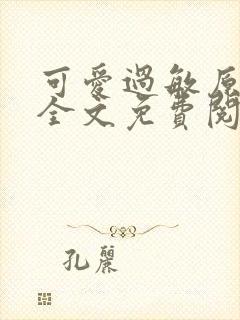 可愛過敏原
全文免費閱
孔麗